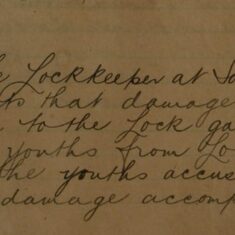 e Lockkeeper at S
ts that damage
to the Lock ga
youths from Lo
the youths accus
damage accomp